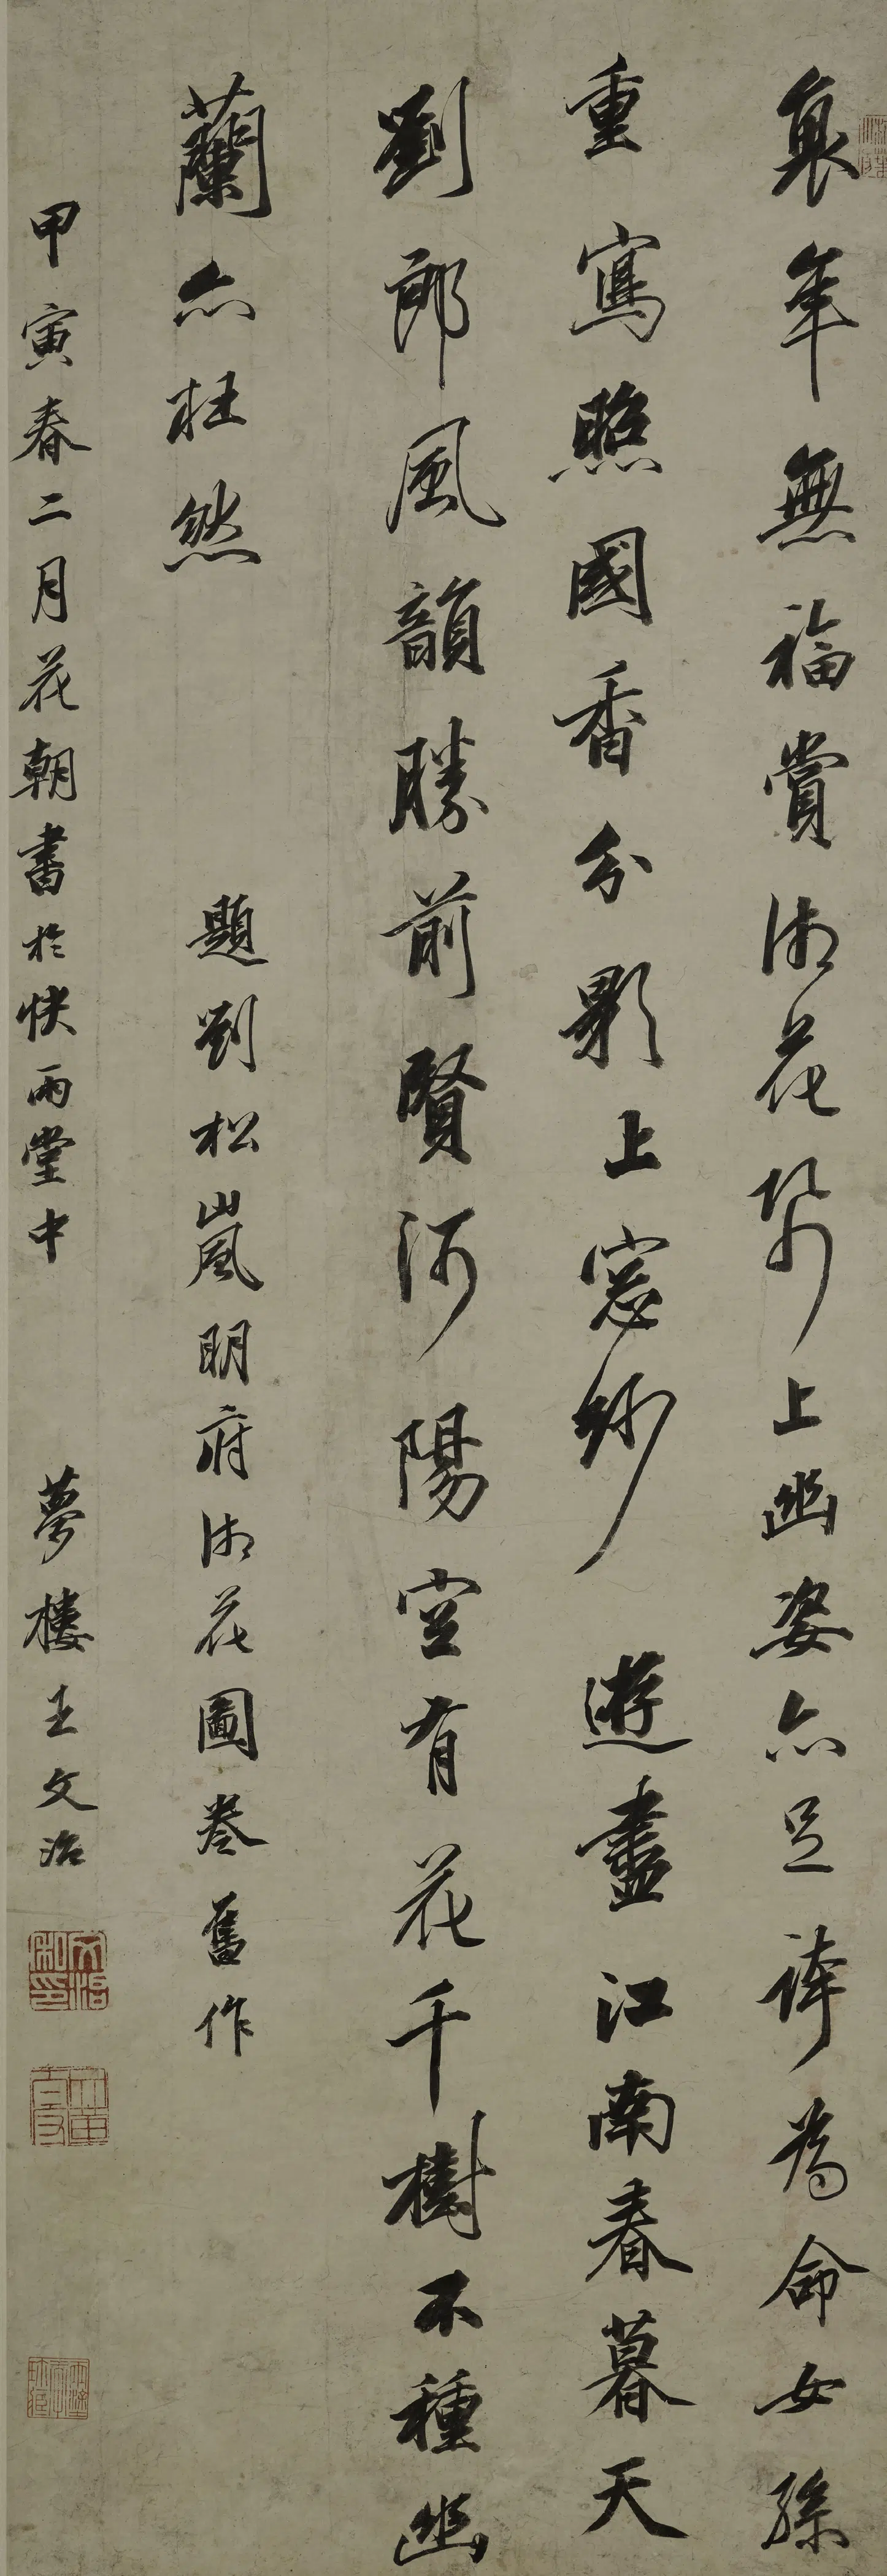 衰年無福賞湘花帋上幽姿亦足誇為命女孫
重寫照國香分影上窓紗 遊盡江南春暮天
劉郎風韻勝前賢河陽空有花千樹不種幽
蘭亦枉然 題劉松嵐明府湘花圖卷舊作
甲寅春二月花朝書於快雨堂中 夢樓王文治
文治私印